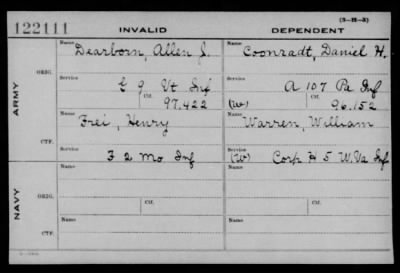 (3-H-3)
122111 INVALID DEPENDENT
Name Name
Dearborn, Allen J. Coonradt, Daniel H.
ORIG.
Service Service
E 9 Vt Inf A 107 Pa Inf
Ctf. Ctf.
97,422 (W) 96,152
ARMY
Name Name
Frei, Henry Warren, William
CTF.
Service Service
F 2 Mo Inf (W) Corp H 5 W.Va Inf
Name Name
ORIG.
Service Service
Ctf. Ctf.
NAVY
Name Name
CTF.
Service Service